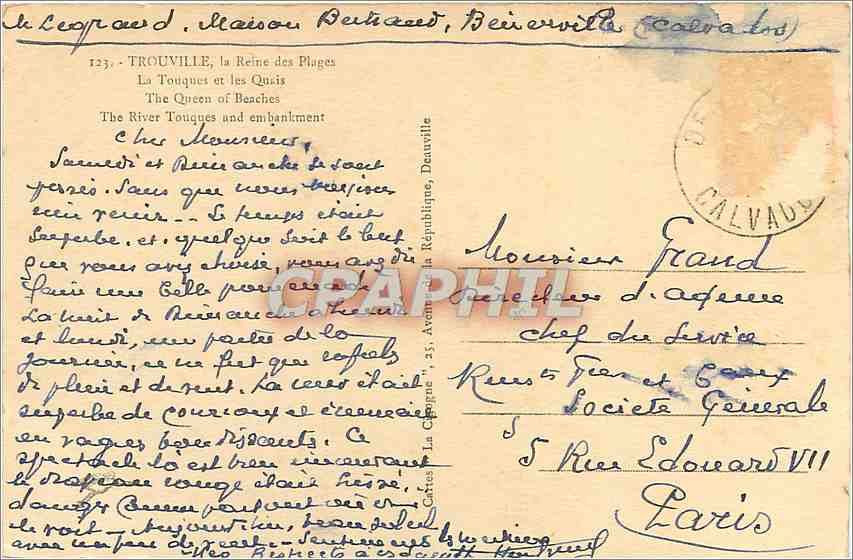 Legrand. Maison Bertrand, Benerville (Calvados)
123. - TROUVILLE, la Reine des Plages
La Touques et les Quais
The Queen of Beaches
The River Touques and embankment
Cher Monsieur,
Samedi et Dimanche se sont
passés. Sans que nous
venir -- Le temps était
superbe. et. quelque soit le but
que vous avez choisi, vous avez dû
faire une belle promenade.
La nuit de Dimanche à Lundi
et lundi, une partie de la
journée, ce ne fut que rafales
de pluie et de vent. La mer était
superbe de courroux et
en vagues bondissantes. Ce
spectacle là est bien
le drapeau rouge était hissé.
danger
le voit - Aujourd'hui, beau soleil
avec un peu de vent -
Cartes " La Cigogne ", 25, Avenue de la République, Deauville
CALVADOS
Monsieur Grand
Directeur d'agence
chef du service
Rens ts et
Société Générale
5 Rue Edouard VII
Paris
CPAPHIL